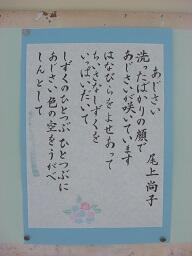 あじさい
尾上尚子
洗ったばかりの顔で
あじさいが咲いています
はなびらをよせあって
ちいさなしずくを
いっぱいだいて
しずくのひとつぶ ひとつぶに
あじさい色の空をうかべ
しんとして